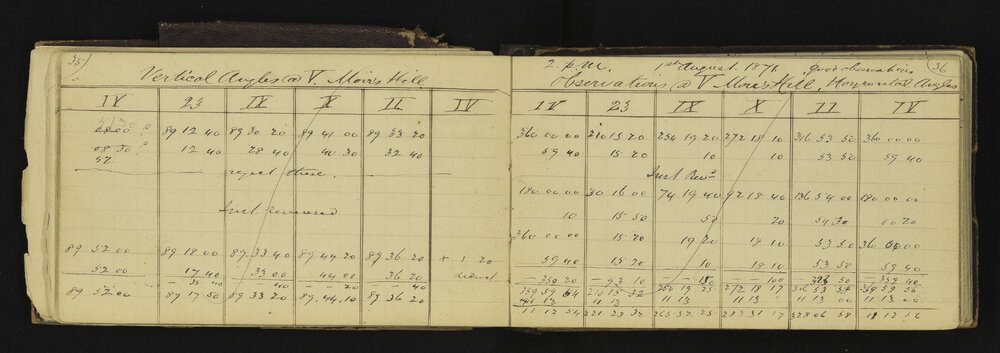 35
Vertical Angles @ V. Moirs Hill
IV 23 IX X II IV
89 12 40 89 30 20 89 41 00 89 33 20
12 40 28 40 40 30 32 40
reject these
Inst. reversed
89 52 00 89 18 00 89 33 40 89 44 20 89 36 20 + 1 20
52 00 17 40 33 00 44 00 36 20 deduct
89 52 00 89 17 50 89 33 20 89 44 10 89 36 20
36
2 p.m. 1st August 1871 good observations
Observations @ V Moirs Hill, Horizontal Angles
IV 23 IX X II IV
360 00 00 210 15 20 254 19 20 272 18 10 316 53 50 360 00 00
59 40 15 20 10 10 53 50 59 40
Inst Revd
180 00 00 30 16 00 74 19 40 92 18 40 136 54 00 180 00 00
10 15 50 50 20 54 30 00 20
360 00 00 15 20 19 20 18 10 53 50 360 00 00
59 40 15 20 10 18 10 53 50 59 40
11 13 11 13 11 13 11 13 00 11 13 00
11 12 54 221 28 32 265 32 25 283 31 17 328 06 58 11 12 56